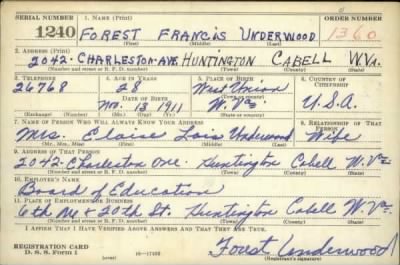 SERIAL NUMBER 1. NAME (Print) ORDER NUMBER
1240 FOREST FRANCIS UNDERWOOD 1360
(First) (Middle) (Last)
2. ADDRESS (Print)
2042-CHARLESTON-AVE HUNTINGTON CABELL W.VA.
(Number and street or R. F. D. number) (Town) (County) (State)
3. TELEPHONE 4. AGE IN YEARS 5. PLACE OF BIRTH 6. COUNTRY OF CITIZENSHIP
26768 28 West Union U.S.A.
DATE OF BIRTH (Town or county)
Nov. 13 1911 W. Va
(Exchange) (Number) (Mo.) (Day) (Yr.) (State or country)
7. NAME OF PERSON WHO WILL ALWAYS KNOW YOUR ADDRESS 8. RELATIONSHIP OF THAT PERSON
Mrs. Eloise Lois Underwood Wife
(Mr., Mrs., Miss) (First) (Middle) (Last)
9. ADDRESS OF THAT PERSON
2042-Charleston ave. Huntington Cabell W. Va
(Number and street or R. F. D. number) (Town) (County) (State)
10. EMPLOYER'S NAME
Board of Education
11. PLACE OF EMPLOYMENT OR BUSINESS
6th Ave - 20th St. Huntington Cabell W. Va.
(Number and street or R. F. D. number) (Town) (County) (State)
I AFFIRM THAT I HAVE VERIFIED ABOVE ANSWERS AND THAT THEY ARE TRUE.
REGISTRATION CARD
D. S. S. Form 1 (over) 16-17105 Forest Underwood
(Registrant's signature)